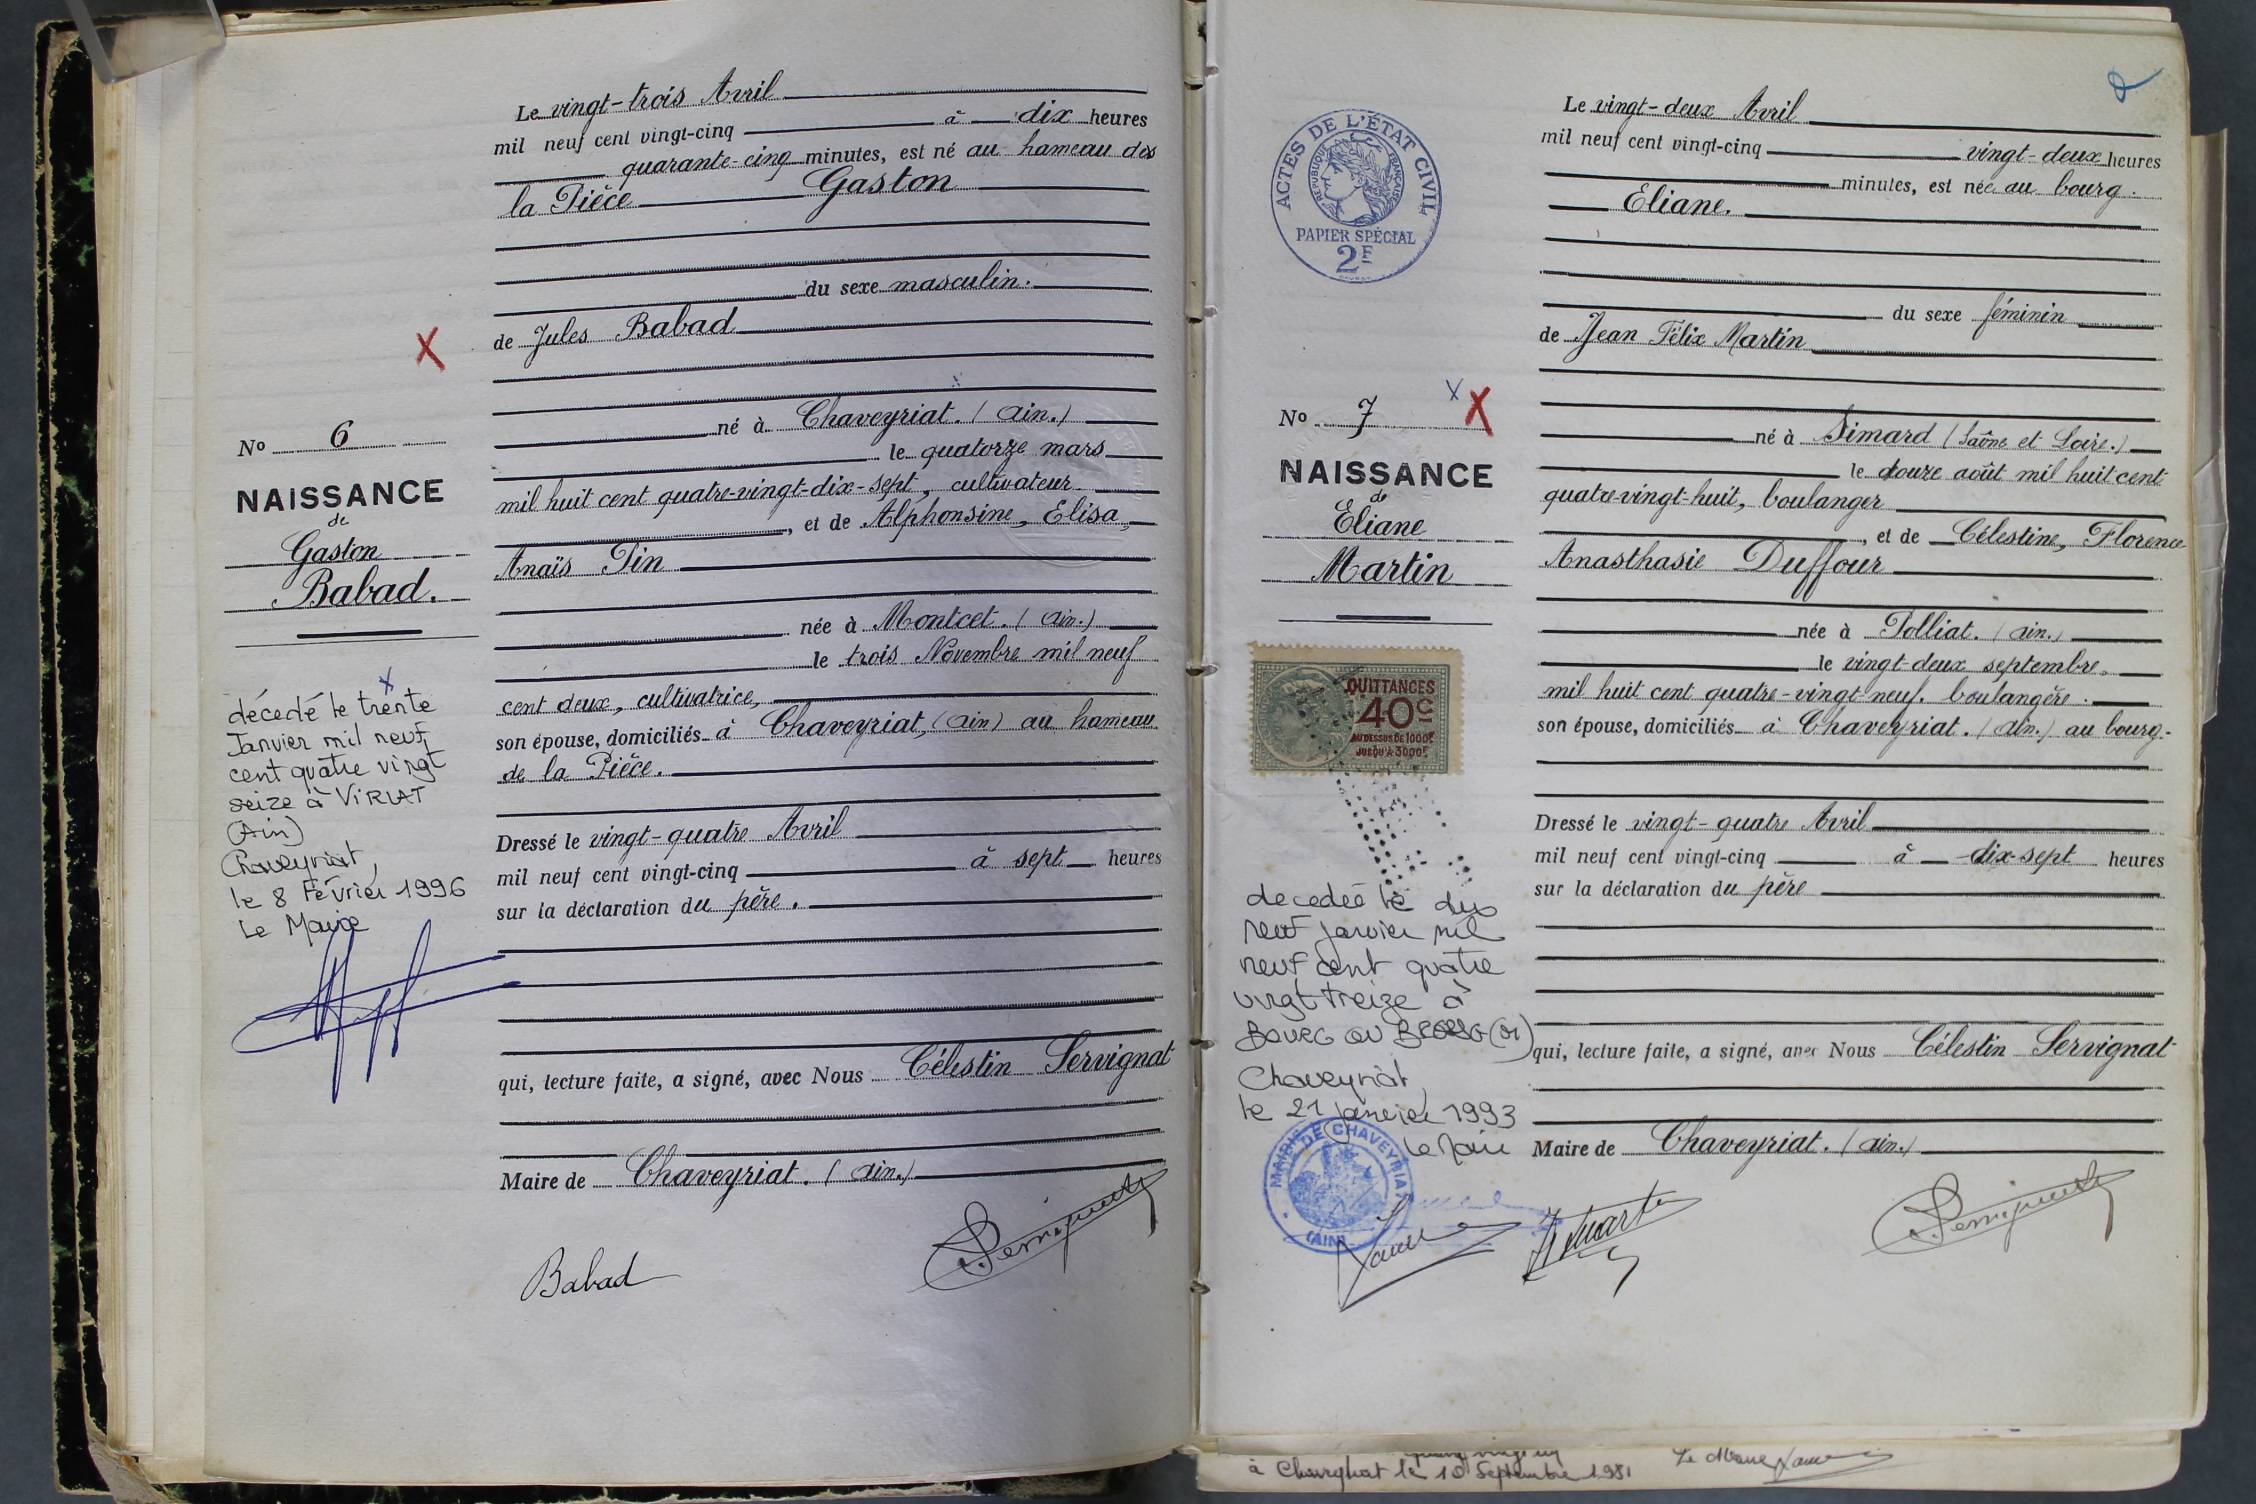 Le vingt-trois Avril
mil neuf cent vingt-cinq à dix heures
quarante-cinq minutes, est né au hameau des
la Pièce Gaston
du sexe masculin.
de Jules Babad
né à Chaveyriat. (Ain.)
le quatorze mars
mil huit cent quatre-vingt-dix-sept, cultivateur
, et de Alphonsine, Elisa,
Anaïs Pin
née à Montcet. (Ain.)
le trois Novembre mil neuf
cent deux, cultivatrice,
son épouse, domiciliés à Chaveyriat, (Ain) au hameau
de la Pièce.
Dressé le vingt-quatre Avril
mil neuf cent vingt-cinq à sept heures
sur la déclaration du père.
qui, lecture faite, a signé, avec Nous Célestin Servignat
Maire de Chaveyriat. (Ain.)
Babad
X
No 6
NAISSANCE
de
Gaston
Babad.
X
décedé le trente
Janvier mil neuf
cent quatre vingt
seize à VIRIAT
(Ain)
Chaveyriat,
le 8 Février 1996
Le Maire
2
ACTES DE L'ÉTAT CIVIL
RÉPUBLIQUE FRANÇAISE
PAPIER SPÉCIAL
2F
Le vingt-deux Avril
mil neuf cent vingt-cinq vingt-deux heures
minutes, est née au bourg.
Eliane.
du sexe féminin
de Jean Félix Martin
né à Simard (Saône et Loire.)
le douze août mil huit cent
quatre-vingt-huit, boulanger
, et de Célestine, Florence
Anasthasie Duffour
née à Polliat. (Ain.)
le vingt-deux septembre
mil huit cent quatre-vingt-neuf. boulangère.
son épouse, domiciliés à Chaveyriat. (Ain.) au bourg.
Dressé le vingt-quatre Avril
mil neuf cent vingt-cinq à dix-sept heures
sur la déclaration du père
qui, lecture faite, a signé, avec Nous Célestin Servignat
Maire de Chaveyriat. (Ain.)
No 7 X X
NAISSANCE
de
Eliane
Martin
QUITTANCES
40c
AU DESSUS DE 1000F
JUSQU'A 3000F
decedée le dix
neuf janvier mil
neuf cent quatre
vingt treize à
BOURG EN BRESSE (01)
Chaveyriat,
le 21 janvier 1993
Le Maire
MAIRIE DE CHAVEYRIAT
(AIN)
à Chaveyriat le 10 Septembre 1981 Le Maire